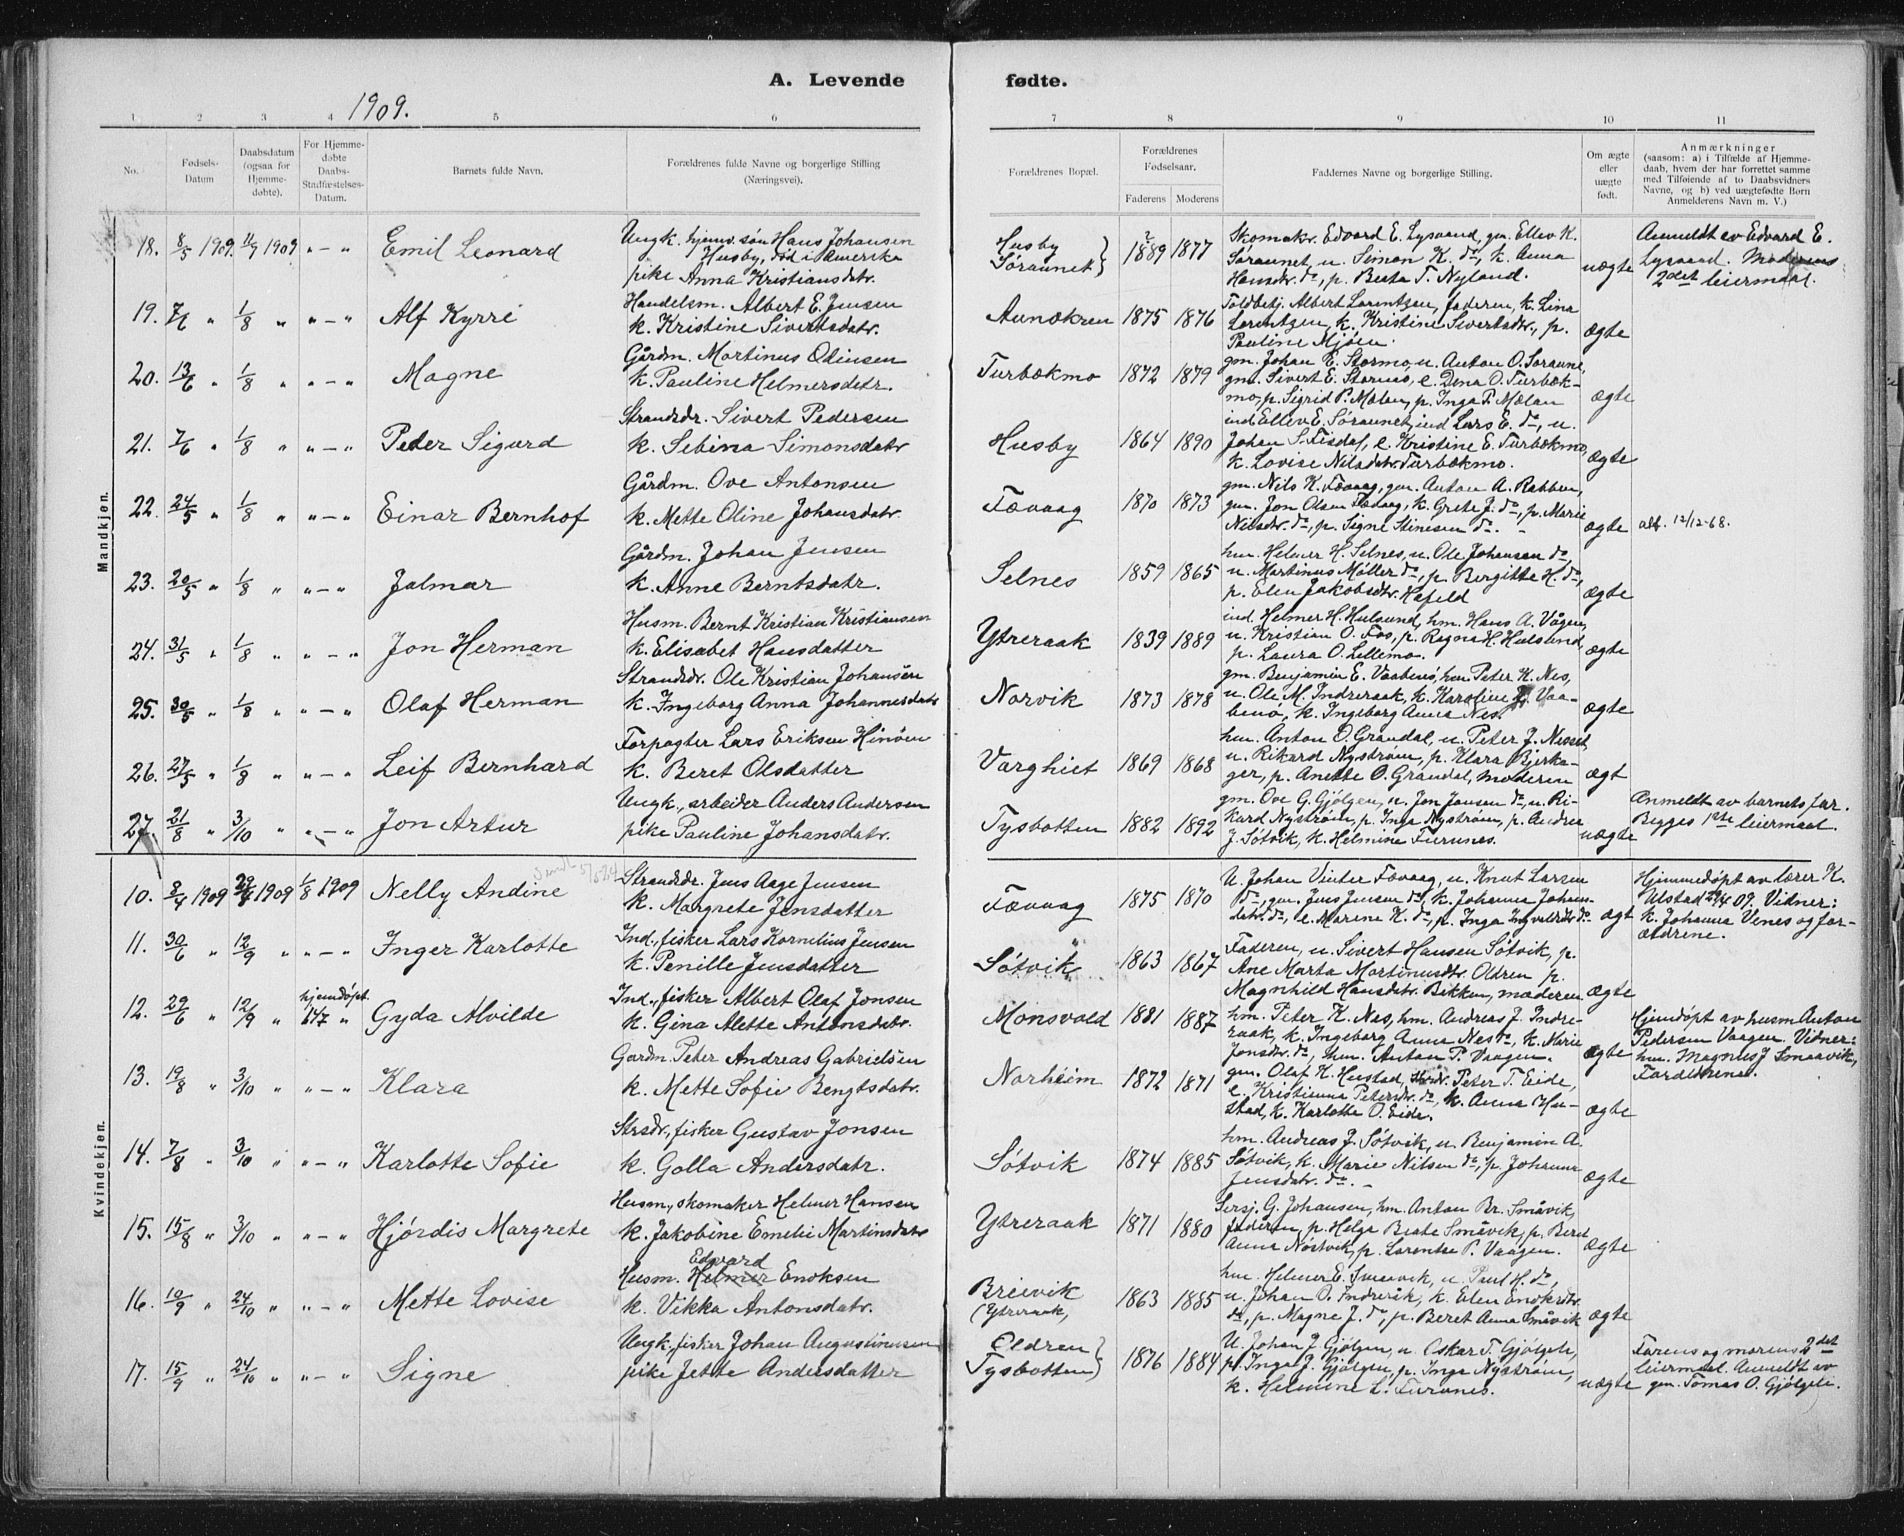 A. Levende fødte.
1909.
1 2 3 4 5 6 7 8 9 10 11
No.
Fødsels-
Datum
Daabsdatum
(ogsaa for
Hjemme-
døbte).
For Hjemme-
døbte
Daabs-
Stadfæstelses-
Datum.
Barnets fulde Navn.
Forældrenes fulde Navne og borgerlige Stilling
(Næringsvei).
Forældrenes Bopæl.
Forældrenes
Fødselsaar.
Faderens Moderens
Faddernes Navne og borgerlige Stilling.
Om ægte
eller
uægte
født.
Anmærkninger
(saasom: a) i Tilfælde af Hjemme-
daab, hvem der har forrettet samme
med Tilføiende af to Daabsvidners
Navne, og b) ved uægtefødte Børn
Anmelderens Navn m. V.)
Mandkjøn.
18. 8/5 1909. 11/7 1909 " - " Emil Leonard
Ungk. hjemv. søn Hans Johansen
Husby, død i Amerika
pike Anna Kristiansdatr.
Husby
Søraunet
1889 1877
Skomakr. Edvard E. Lysaand, gm. Ellev K.
Søraunet, u. Simon K. do, k. Anna
Hansdr. do, p. Berta T. Nyland.
uægte
Anmeldt av Edvard E.
Lysaand. Moderens
2det leiermaal.
19. 7/6 " 1/8 " " - " Alf Kyrre
Handelsm. Albert E. Jensen
k. Kristine Sivertsdatr.
Aunækren
1875 1876
Toldbetj. Albert Lorentzen, faderen, k. Lina
Lorentzen, k. Kristine Sivertsdr., p.
Pauline Mjøen.
ægte
20. 13/6 " 1/8 " " - " Magne
Gårdm. Martinus Odinsen
k. Pauline Helmersdatr.
Turbækmo
1872 1879
gm. Johan E. Stormo, u. Anton O. Søraune,
gm. Sivert E. Stornes, e. Dena O. Turbæk-
mo, p. Sigrid P. Mælan, p. Inga P. Mælan
ægte
21. 7/6 " 1/8 " " - " Peder Sigurd
Strandsdr. Sivert Pedersen
k. Sebina Simonsdatr
Husby
1864 1890
ind Ellev E. Søraunet, ind Lars E. do, u.
Johan S. Fisdal, e. Kristine E. Turbækmo,
k. Lovise Nilsdatr. Turbækmo.
ægte
22. 24/5 " 1/8 " " - " Einar Bernhof
Gårdm. Ove Antonsen
k. Mette Oline Johansdatr.
Fævaag
1870 1873
gm. Nils K. Fævaag, gm. Anton A. Rabben,
gm. Jon Olsen Fævaag, k. Grete J. do, p. Marie
Nilsdr. do, p. Signe Stinesen do.
ægte
att. 12/12-68.
23. 20/5 " 1/8 " " - " Jalmar
Gårdm. Johan Jensen
k. Anne Berntsdatr.
Selnes
1859 1865
hm. Helmer H. Selnes, u. Ole Johansen do,
u. Martinus Møller do, p. Bergitte H. do,
p. Elen Jakobsdtr. Hafeld
ægte
24. 31/5 " 1/8 " " - " Jon Herman
Husm. Bernt Kristian Kristiansen
k. Elisabet Hansdatter
Ytreraak
1839 1889
ind. Helmer H. Hulsund, hm. Hans A. Vågen,
u. Kristian O. Fos, p. Ragna H. Hulsund,
p. Laura O. Lillemo.
ægte
25. 30/5 " 1/8 " " - " Olaf Herman
Strandsdr. Ole Kristian Johansen
k. Ingeborg Anna Johannesdatr
Norvik
1873 1878
gm. Benjamin E. Vaabenø, hm Peter K. Nes,
u. Ole M. Indreraak, k. Karoline J. Vaa-
benø, k. Ingeborg Anna Nes.
ægte
26. 27/5 " 1/8 " " - " Leif Bernhard
Forpagter Lars Eriksen Hinøen
k. Beret Olsdatter
Varghiet
1869 1868
hm. Anton O. Grandal, u. Peter J. Nesset,
u. Rikard Nystrøm, p. Klara Bjerka-
ger, p. Anette O. Grandal, moderen
ægt
27. 21/8 " 3/10 " " - " Jon Artur
Ungk., arbeider Anders Andersen
pike Pauline Johansdatr.
Tysbotten
1882 1892
gm. Ove G. Gjølgen, u. Jon Jonsen do, u. Ri-
kard Nystrøm, p. Inga Nystrøm, p. Andrea
J. Søtvik, k. Helmine Furunes.
uægte
Anmeldt av barnets far.
Begges 1ste leiermaal.
Kvindekjøn.
10. 2/4 1909 29/4 1909 1/8 1909 Nelly Andine
Strandsdr. Jens Aage Jensen
k. Margrete Jensdatter
Fævaag
1875 1870
U. Johan Vinter Fævaag, u. Knut Larsen
do, gm. Jens Jensen do, k. Johanna Johans-
datr. do, e. Marine K. do, p. Inga Ingvaldsdr. do
ægt
Hjemmedøpt av lærer K.
Ulstad 29/4 09. Vidner:
k. Johanna Venes og for-
ældrene.
11. 30/6 " 12/9 " " - " Inger Karlotte
Ind., fisker Lars Kornelius Jensen
k. Penille Jensdatter
Søtvik
1863 1867
Faderen, u. Sivert Hansen Søtvik, p.
Ane Marta Martinusdtr. Oldren p.
Magnhild Hansdatr. Bikken, moderen
ægte
12. 29/6 " 12/9 " hjemdøpt 4/7 " Gyda Alvilde
Ind., fisker Albert Olaf Jonsen
k. Gina Alette Antonsdatr.
Monsvold
1881 1887
hm. Peter K. Nes, hm. Andreas J. Indre-
raak, k. Ingeborg Anna Nes do, k. Marie
Jonsdtr. do, hm. Anton P. Vaagen.
ægte
Hjemdøpt av husm Anton
Pedersen Vaagen. Vidner:
hm. Magnus J Smaavik,
Forældrene.
13. 19/8 " 3/10 " " - " Klara
Gardm. Peter Andreas Gabrielsen
k. Mette Sofie Bengtsdatr.
Norheim
1872 1871
gm. Olaf H. Hustad, Peter T. Eide,
e. Kristianna Petersdr. do, k. Anna Hu-
stad, k. Karlotte O. Eide.
ægte
14. 7/8 " 3/10 " " - " Karlotte Sofie
Strsdr., fisker Gustav Jonsen
k. Golla Andersdatr.
Søtvik
1874 1885
hm. Andreas J. Søtvik, u. Benjamin A.
Søtvik, k. Marie Nilsen do, p. Johanna
Jensdatr. do.
ægte
15. 15/8 " 3/10 " " - " Hjørdis Margrete
Husm., skomaker Helmer Hansen
k. Jakobine Emelie Martinsdatr
Ytreraak
1871 1880
Sersj. G. Johansen, hm. Anton Br. Småvik,
faderen, p. Helga Beate Småvik, p. Beret
Anna Nørstvik, p. Lorentse P. Vaagen.
ægte
16. 10/9 " 24/10 " " - " Mette Lovise
Edvard
Husm. Helmer Enoksen
k. Vikka Antonsdatr.
Breivik
(Ytreraak,
1863 1885
hm. Helmer E. Smaavik, u. Paul H. do,
u. Johan O. Inderøik, k. Elen Enoksdtr
do, p. Magne J. do, p. Beret Anna Småvik
ægte
17. 15/9 " 24/10 " " - " Signe
Ungk., fisker Johan Augustinusen
pike Jette Andersdatter
Oldren
Tysbotten
1876 1884
U. Johan J. Gjølgen, u. Oskar T. Gjølgeli,
p. Inga J. Gjølgen, p. Inga Nystrøm,
k. Helmine L. Furunes.
uægte
Farens og morens 2det
leiermaal. Anmeldt av
gm. Tomas O. Gjølgeli.